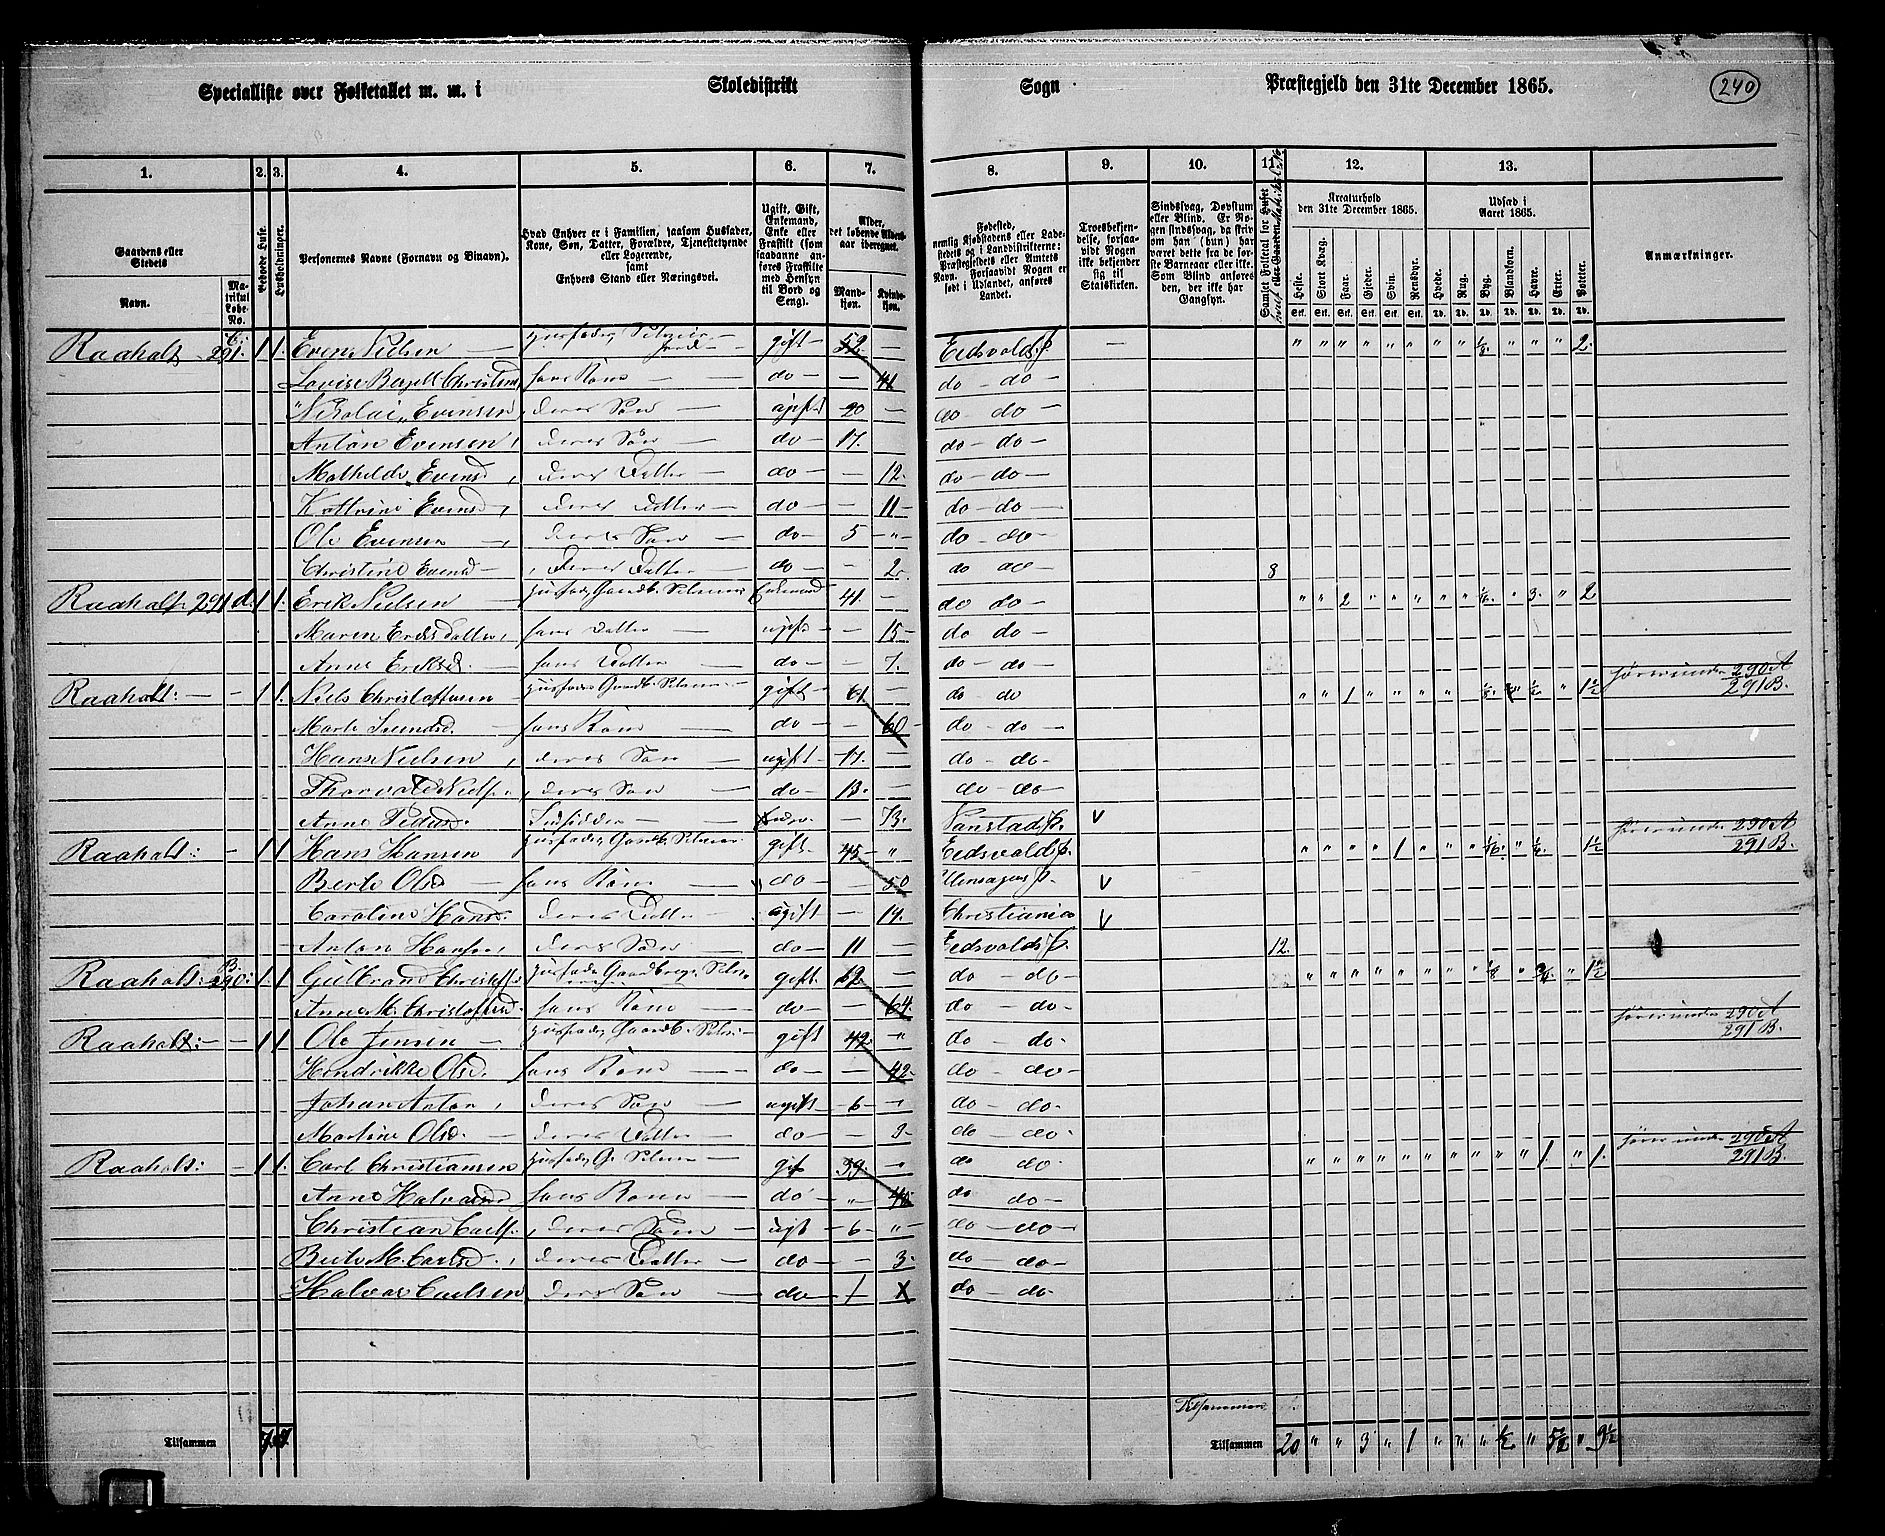 Specialliste over Folketallet m. m. i Skoledistrikt Sogn Præstegjeld den 31te December 1865. 240
1. 2. 3. 4. 5. 6. 7. 8. 9. 10. 11. 12. 13.
Gaardens eller Stedets Navn. Matrikul Løbe-No. Beboede Huse. Husholdninger. Personernes Navne (Fornavn og Binavn).
Hvad Enhver er i Familien, saasom Husfader, Kone, Søn, Datter, Forældre, Tjenestetyende eller Logerende, samt Enhvers Stand eller Næringsvei.
Ugift, Gift, Enkemand, Enke eller Fraskilt (som saadanne anføres Fraskilte med Hensyn til Bord og Seng).
Alder, det løbende Aldersaar iberegnet. Mandkjøn. Kvindekjøn.
Fødested, nemlig Kjøbstadens eller Ladestedets og i Landdistrikterne: Præstegjeldets eller Amtets Navn. Forsaavidt Nogen er født i Udlandet, anføres Landet.
Troesbekjendelse, forsaavidt Nogen ikke bekjender sig til Statskirken.
Sindssvag, Døvstum eller Blind. Er Nogen sindssvag, da skriv om han (hun) har været dette fra de første Barneaar eller ikke. Som Blind anføres den, der ikke har Gangsyn.
Samlet Folketal for Huset
Kreaturhold den 31te December 1865. Heste. Stort Kvæg. Faar. Gjeder. Svin. Rensdyr.
Udsæd i Aaret 1865. Hvede. Rug. Byg. Blandkorn. Havre. Erter. Poteter.
Anmærkninger.
Raaholt 291. 1 1. Even Nielsen gift 52. Eidsvolds P. 2.
Lovise hans Kone do 41 do do
Nikolai Evensen deres Søn ugift 20 do do
Anton Evensen deres Søn do 17. do do
Mathilde Evensd deres Datter do 12. do do
Kattrine Evensd deres Datter do 11 do do
Ole Evensen deres Søn do 5 do do
Christine Evensd deres Datter do 2 do do 8
Raaholt 291 d. 1 1. Erik Nielsen Enkemand 41. do do 2 3. 2
Maren Eriksdatter hans Datter ugift 15 do do
Anne Eriksd. hans Datter do 7. do do
Raaholt: 1 1. Niels Christoffersen gift 61. do do 1 1½ hører under 290 A 291 B.
Marte hans Kone do 60 do do
Hans Nielsen deres Søn ugift 17. do do
Thorvald Niels. deres Søn do 13. do do
Anne Inderst 73. V
Raaholt: 1 1 Hans Hansen gift 45 Eidsvolds P. 1 1½ hører under 290 A 291 B.
Berte Olsd hans Kone do 50 V
Caroline Hansd. deres Datter ugift 14. Christiania V
Anton Hansen deres Søn do 11 Eidsvolds P. 12.
Raaholt: 290: B 1 1. Gulbrand gift do do 1½
Anne M. Christoffersd. hans Kone do 64. do do
Raaholt: 1 1 Ole Jensen gift 42. do do hører under 290 A 291 B.
Hendrikke Olsd. hans Kone do 42 do do
Johan Anton deres Søn ugift 6 do do
Martine Olsd. deres Datter do do do
Raaholt: 1 1. Carl Christiansen gif 39. do do 1. 1. hører under 290 A 291 B.
Anne hans Kone do 40 do do
Christian Carls. deres Søn ugt 6 do do
Berte M. Carlsd. deres Datter do 3. do do
Halvor Carlsen deres Søn do 1 do do
Tilsammen
Tilsammen 7 Tilsammen 20 3 1 9½